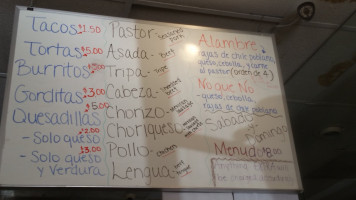 Tacos $1.50
Tortas $5.00
Burritos $5.00
Gorditas $3.00
$5.00
Quesadillas
$2.00
- Solo queso
$3.00
- Solo queso
y verdura
Pastor - seasoned pork
Asada - beef
Tripa -
Cabeza -
Chorizo -
Choriqueso -
Pollo - chicken
Lengua -
Alambre
rajas de chile poblano
queso, cebolla, y carne
al pastor (orden de 4)
No que No
- queso, cebolla
rajas de chile poblano
Sabado
Domingo
Menudo $8.00